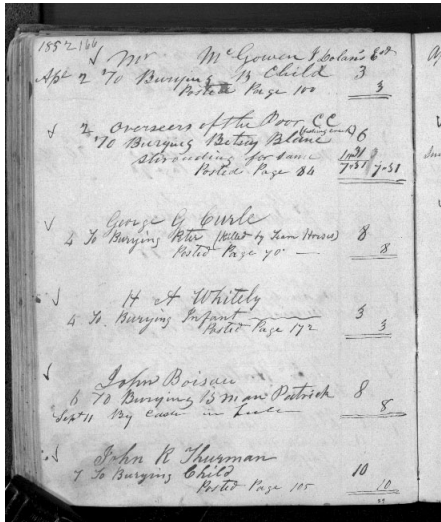 1852 166
Mr McGowen
Apl 2 To Burying B Child 3
Posted Page 100 3
2 Overseers of the Poor CC
To Burying Betsy Blane 6
Shrouding for same 1.31
Posted Page 84 7.31 7.31
George G Curle
4 To Burying Peter (Killed by Team Horses) 8
Posted Page 70 8
H A Whitely
4 To Burying Infant 3
Posted Page 172 3
John Boisau
6 To Burying B man Patrick 8
Sept 11 By Cash in full 8
John R Thurman
7 To Burying Child 10
Posted Page 105 10